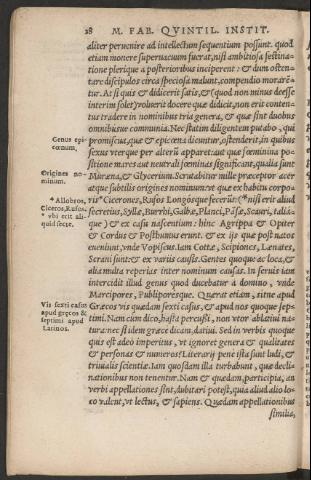 28 M. FAB. QVINTIL. INSTIT.
aliter peruenire ad intellectum sequentium possunt. quod
etiam monere superuacuum fuerat, nisi ambitiosa festina-
tione plerique a posterioribus inciperent: & dum osten-
tare discipulos circa speciosa malunt, compendio morarẽ-
tur. At si quis & didicerit satis, & (quod non minus deesse
interim solet) voluerit docere quæ didicit, non erit conten-
tus tradere in nominibus tria genera, & quæ sint duobus
omnibusue communia. Nec statim diligentem putabo, qui
Genus epi-
cœnum.
promiscua, quæ & epicœna dicuntur, ostenderit, in quibus
sexus vterque per alterũ apparet: aut quæ fœminina po-
sitione mares aut neutrali fœminas significant, qualia sunt
Origines no
minum.
Muræna, & Glycerium. Scrutabitur mille præceptor acer
atque subtilis origines nominum: vt quæ ex habitu corpo-
* Allobros,
Cicero, Rufos,
vbi erit ali-
quid secte.
ris* Cicerones, Rufos Longósque fecerũt: (*nisi erit aliud
secretius, Syllæ, Burrhi, Galbæ, Planci, Pãsæ, Scauri, taliá-
que) & ex casu nascentium: hinc Agrippa & Opiter
& Cordus & Posthumus erunt. & ex iis quæ post natos
eueniunt, vnde Vopiscus. iam Cottæ, Scipiones, Lænates,
Serani sunt: & ex variis causis. Gentes quoque ac loca, &
alia multa reperias inter nominum causas. In seruis iam
intercidit illud genus quod ducebatur a domino, vnde
Marcipores, Publiporesque. Quærat etiam, sitne apud
Vis sexti casus
apud græcos &
septimi apud
Latinos.
Græcos vis quædam sexti casus, & apud nos quoque sep-
timi. Nam cùm dico, hasta percussi, non vtor ablatiui na-
tura: nec si idem græcè dicam, datiui. Sed in verbis quoque
quis est adeo imperitus, vt ignoret genera & qualitates
& personas & numeros? Literarij pene ista sunt ludi, &
triuialis scientiæ. Iam quosdam illa turbabunt, quæ decli-
nationibus non tenentur. Nam & quædam, participia, an
verbi appellationes sint, dubitari potest, quia aliud alio lo-
co valent, vt lectus, & sapiens. Quædam appellationibus
similia,